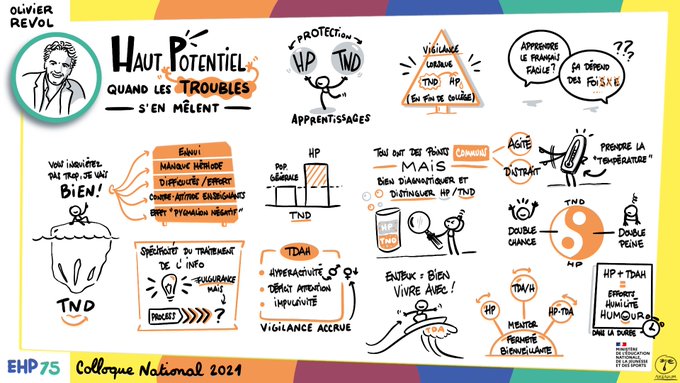 OLIVIER
REVOL
HAUT POTENTIEL
QUAND LES TROUBLES
S'EN MÊLENT
PROTECTION
HP
TND
APPRENTISSAGES
VIGILANCE
LORSQUE
TND HP
(EN FIN DE COLLÈGE)
APPRENDRE
LE FRANÇAIS
FACILE?
???
ÇA DÉPEND
DES FOISXE
VOUS INQUIÉTEZ
PAS TROP, JE VAIS
BIEN!
TND
ENNUI
MANQUE MÉTHODE
DIFFICULTÉS/EFFORT
CONTRE-ATTITUDE ENSEIGNANTS
EFFET "PYGMALION NÉGATIF"
POP.
GÉNÉRALE
HP
TND
TOUS ONT DES POINTS COMMUNS
MAIS
BIEN DIAGNOSTIQUER ET
DISTINGUER HP/TND
HP
TND
AGITÉ
DISTRAIT
PRENDRE LA
"TEMPÉRATURE"
TND
DOUBLE
CHANCE
DOUBLE
PEINE
HP
SPÉCIFICITÉ DU TRAITEMENT
DE L'INFO
FULGURANCE
MAIS
PROCESS
?
TDAH
HYPERACTIVITÉ
DÉFICIT ATTENTION
IMPULSIVITÉ
VIGILANCE ACCRUE
ENJEUX = BIEN
VIVRE AVEC!
TDA
HP
TDA/H
HP-TDA
MENTOR
FERMETÉ
BIENVEILLANTE
HP + TDAH
=
EFFORTS
HUMILITÉ
HUMOUR
DANS LA DURÉE
EHP 75
Colloque National 2021
MINISTÈRE
DE L'ÉDUCATION
NATIONALE,
DE LA JEUNESSE
ET DES SPORTS